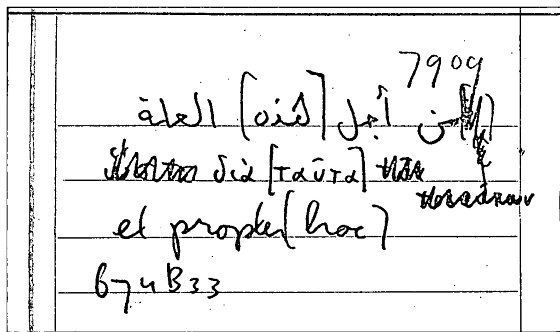 7909
من أجل [هذه] العلة
διὰ [ταῦτα]
et propter [hoc]
674B33